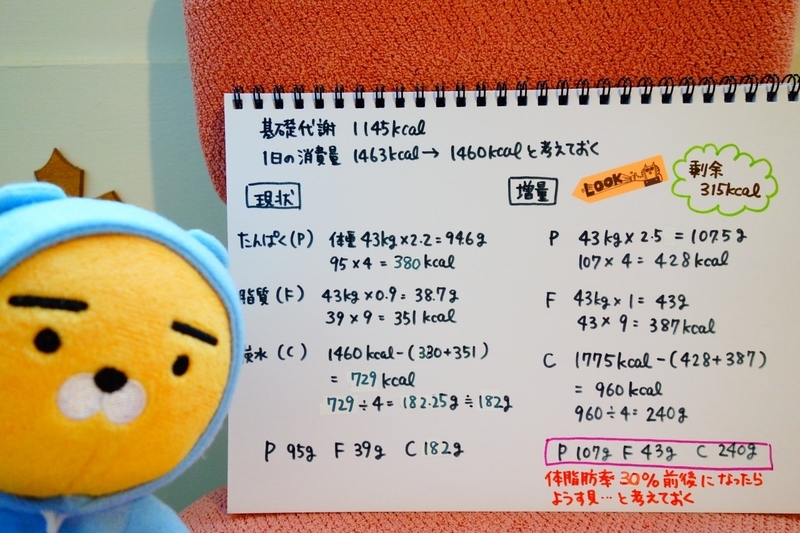 基礎代謝 1145kcal
1日の消費量 1463kcal→1460kcalと考えておく
現状
たんぱく(P) 体重43kg×2.2=946g
95×4=380kcal
脂質(F) 43kg×0.9=38.7g
39×9=351kcal
炭水(C) 1460kcal-(380+351)
=729kcal
729÷4=182.25g≒182g
P 95g F 39g C 182g
増量
LOOK
剰余
315kcal
P 43kg×2.5=1075g
107×4=428kcal
F 43kg×1=43g
43×9=387kcal
C 1775kcal-(428+387)
=960kcal
960÷4=240g
P 107g F 43g C 240g
体脂肪率30%前後になったら
ようす見…と考えておく